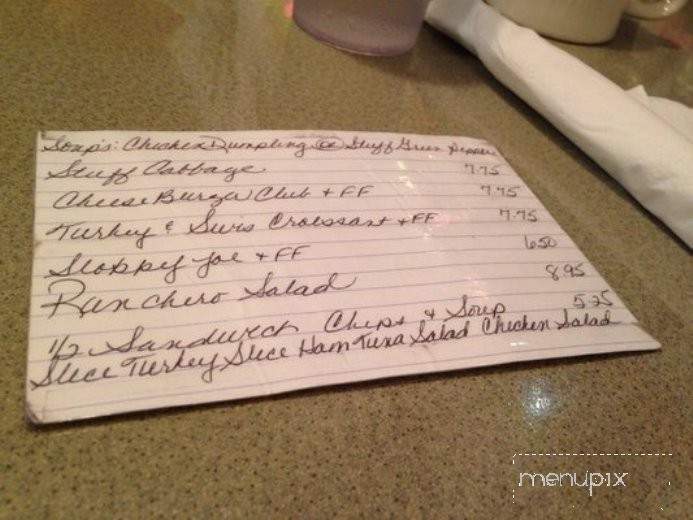 Soup's: Chicken Dumpling or Stuff Green Pepper
Stuff Cabbage 7.75
Cheese Burger Club + FF 7.75
Turkey & Swis Croissant + FF 7.75
Sloppy Joe + FF 6.50
Ranchero Salad 8.95
1/2 Sandwich Chips & Soup 5.25
Slice Turkey Slice Ham Tuna Salad Chicken Salad
menupix